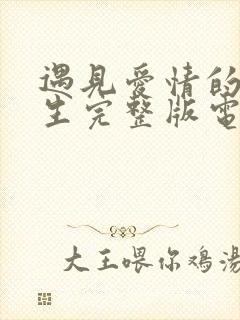 遇見愛情的
生完整版電
大王喂你鸡湯